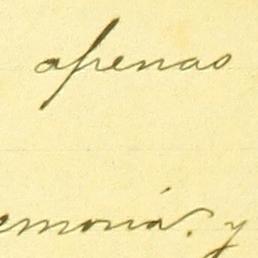 apenas
emoria. y